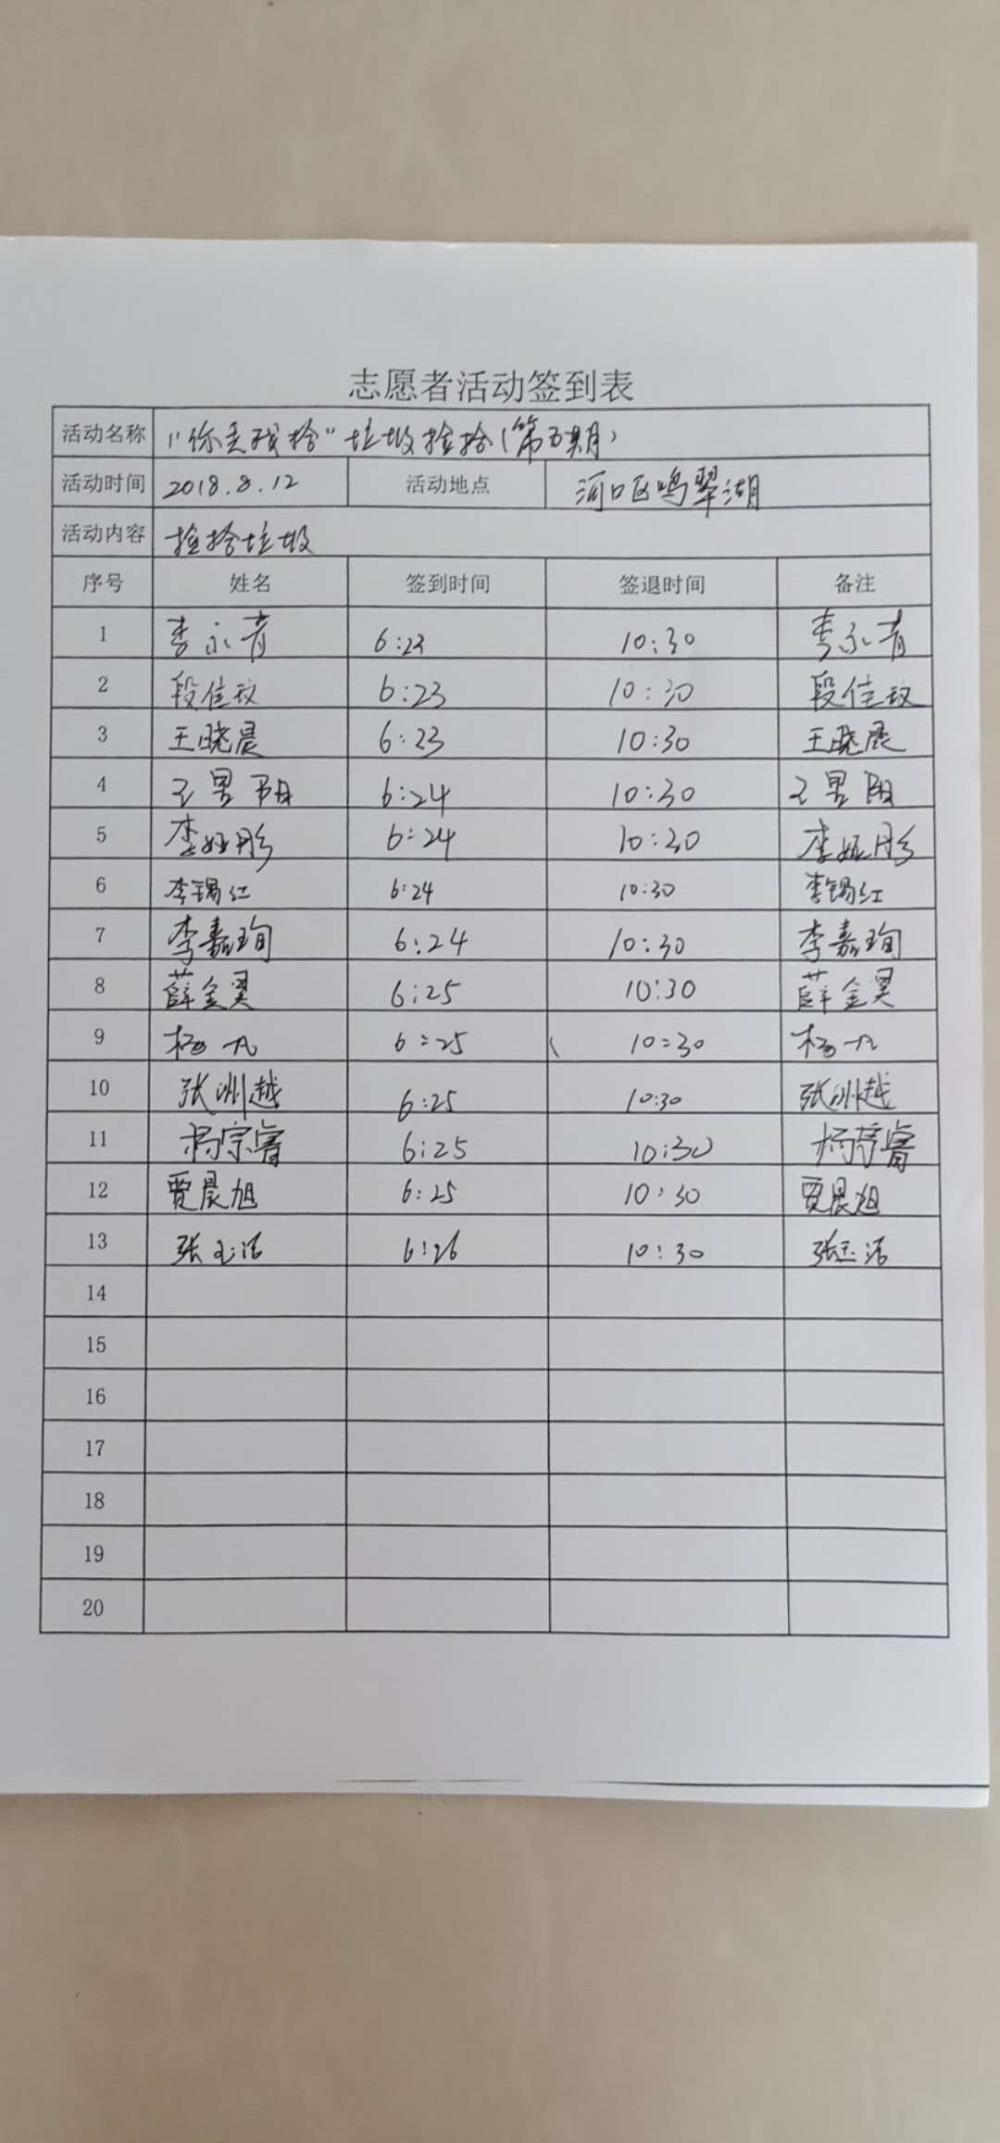 志愿者活动签到表
活动名称 "你丢我捡"垃圾捡拾(第五期)
活动时间 2018.8.12 活动地点 河口区鸣翠湖
活动内容 捡拾垃圾
序号 姓名 签到时间 签退时间 备注
1 李永青 6:23 10:30 李永青
2 段佳玟 6:23 10:30 段佳玟
3 王晓晨 6:23 10:30 王晓晨
4 王昱阳 6:24 10:30 王昱阳
5 李姬彤 6:24 10:30 李姬彤
6 李锡红 6:24 10:30 李锡红
7 李嘉珣 6:24 10:30 李嘉珣
8 薛金昊 6:25 10:30 薛金昊
9 杨九 6:25 10:30 杨九
10 张洲越 6:25 10:30 张洲越
11 杨宗睿 6:25 10:30 杨宗睿
12 贾晨旭 6:25 10:30 贾晨旭
13 张玉洁 6:26 10:30 张玉洁
14
15
16
17
18
19
20